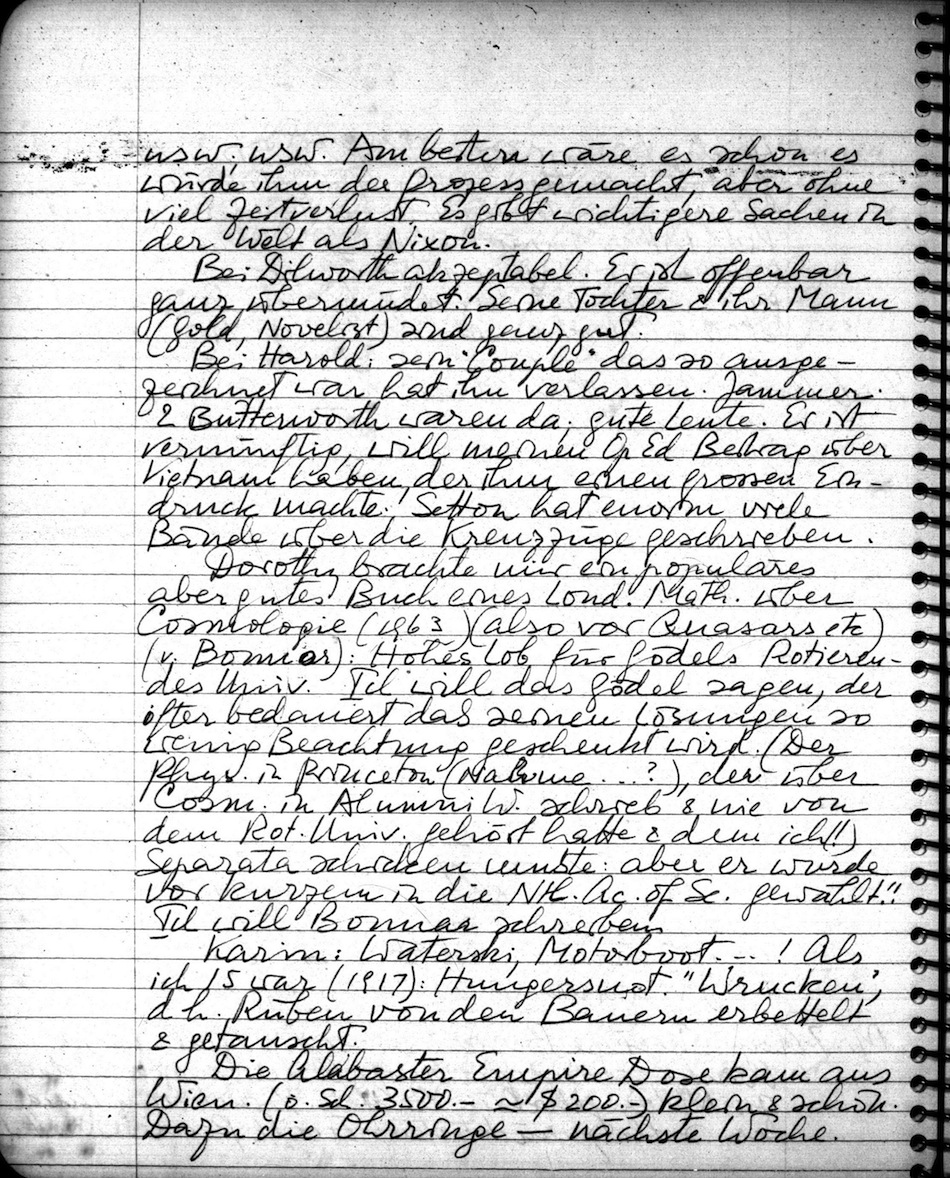 usw. usw. Am besten wäre es schon es
würde ihm der Prozess gemacht, aber ohne
viel Zeitverlust. Es gibt wichtigere Sachen in
der Welt als Nixon.
Bei Dilworth akzeptabel. Er ist offenbar
ganz überwundet. Seine Tochter & ihr Mann
(Gold, Novelist) sind ganz gut.
Bei Harold: sein "Couple" das so ausge-
zeichnet war hat ihn verlassen. Jammer.
2 Butterworth waren da. gute Leute. Er ist
vernünftig, will meinen Op Ed Beitrag über
Vietnam haben, der ihm einen grossen Ein-
druck machte. Setton hat enorm viele
Bände über die Kreuzzüge geschrieben.
Dorothy brachte mir ein populäres
aber gutes Buch eines Lond. Math. über
Cosmologie (1963) (also vor Quasars etc)
(v. Bonnor): Hohes Lob für Gödels Rotieren-
des Univ. Ich will das Gödel sagen, der
öfter bedauert das seinen Lösungen so
wenig Beachtung geschenkt wird. (Der
Phys. in Princeton ( ...?), der über
Cosm. in Alumni W. schrieb & nie von
dem Rot. Univ. gehört hatte & dem ich(!!)
Separata schicken musste: aber er wurde
vor kurzem in die Ntl. Ac. of Sc. gewählt!!
Ich will Bonnor schreiben
Karin: Waterski, Motorboot... ! Als
ich 15 war (1917): Hungersnot. "Wrucken",
d.h. Rüben von den Bauern erbettelt
& getauscht.
Die Alabaster Empire Dose kam aus
Wien. (ö. Sch. 3500.- ~ $ 200.-) klein & schön.
Dazu die Ohrringe — nächste Woche.